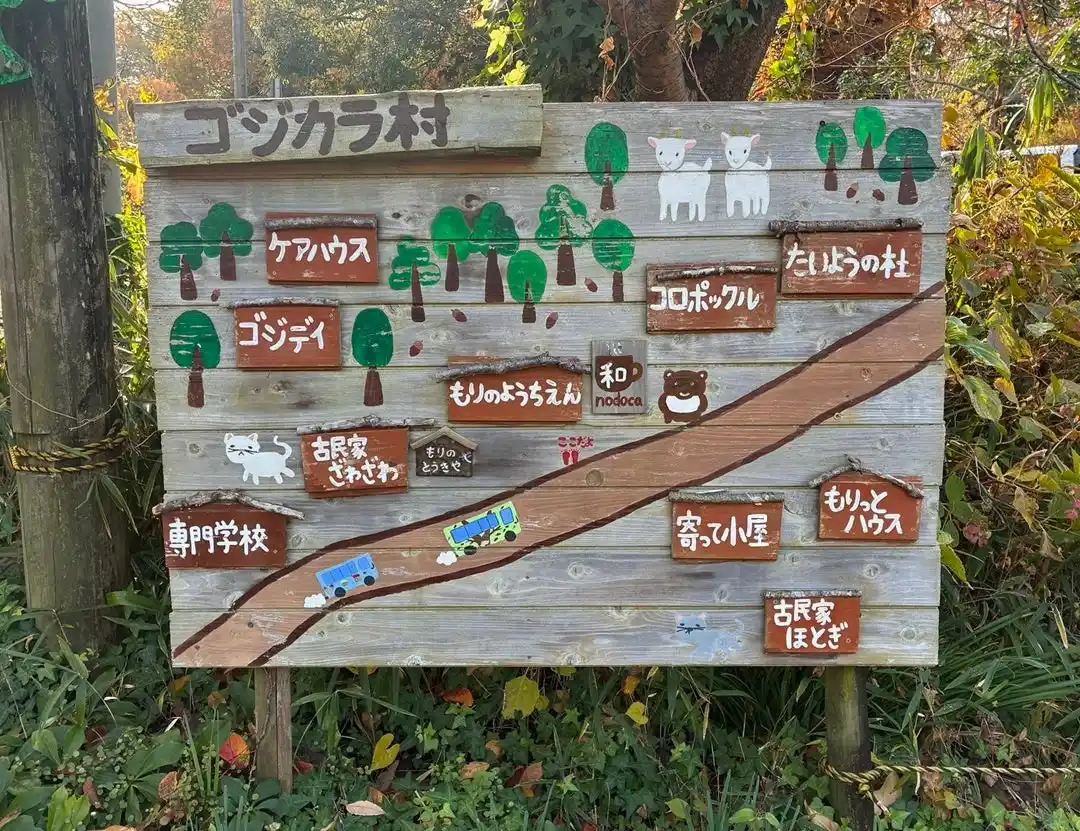 ゴジカラ村
ケアハウス
たいようの杜
コロポックル
ゴジデイ
もりのようちえん
和
nodoca
古民家
ざわざわ
もりの
とうきや
ここだよ
専門学校
寄って小屋
もりっと
ハウス
古民家
ほとぎ